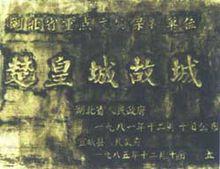 湖北省重点文物保护单位
楚皇城故城
湖北省人民政府
一九八一年十二月 十日公布
宜城县人民政府
一九八五年十二月 立